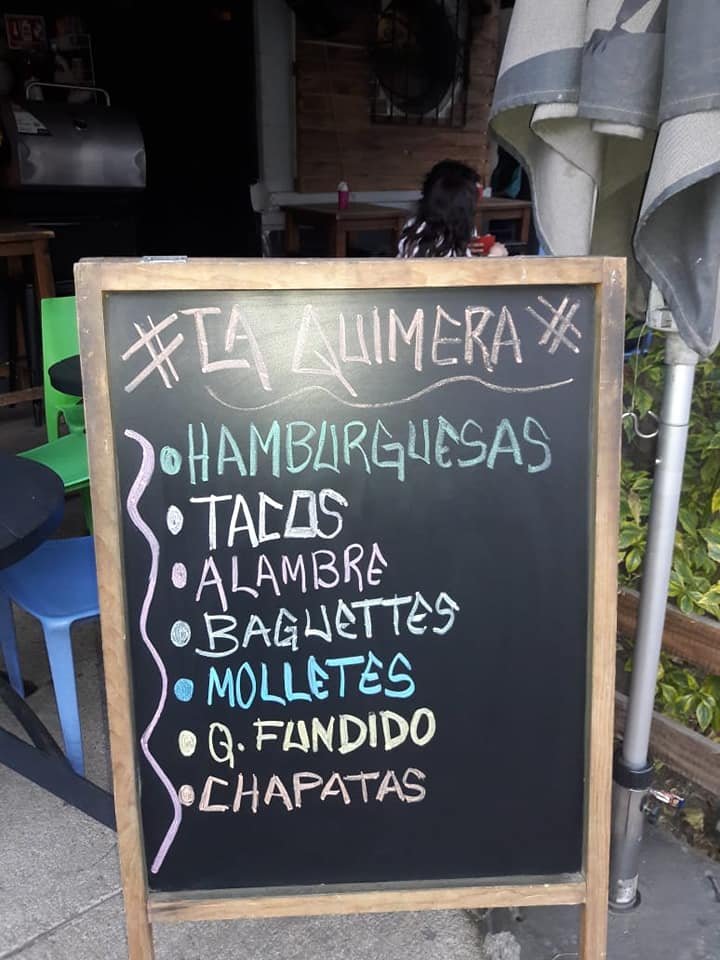 #LA QUIMERA#
•HAMBURGUESAS
•TACOS
•ALAMBRE
•BAGUETTES
•MOLLETES
•Q. FUNDIDO
•CHAPATAS